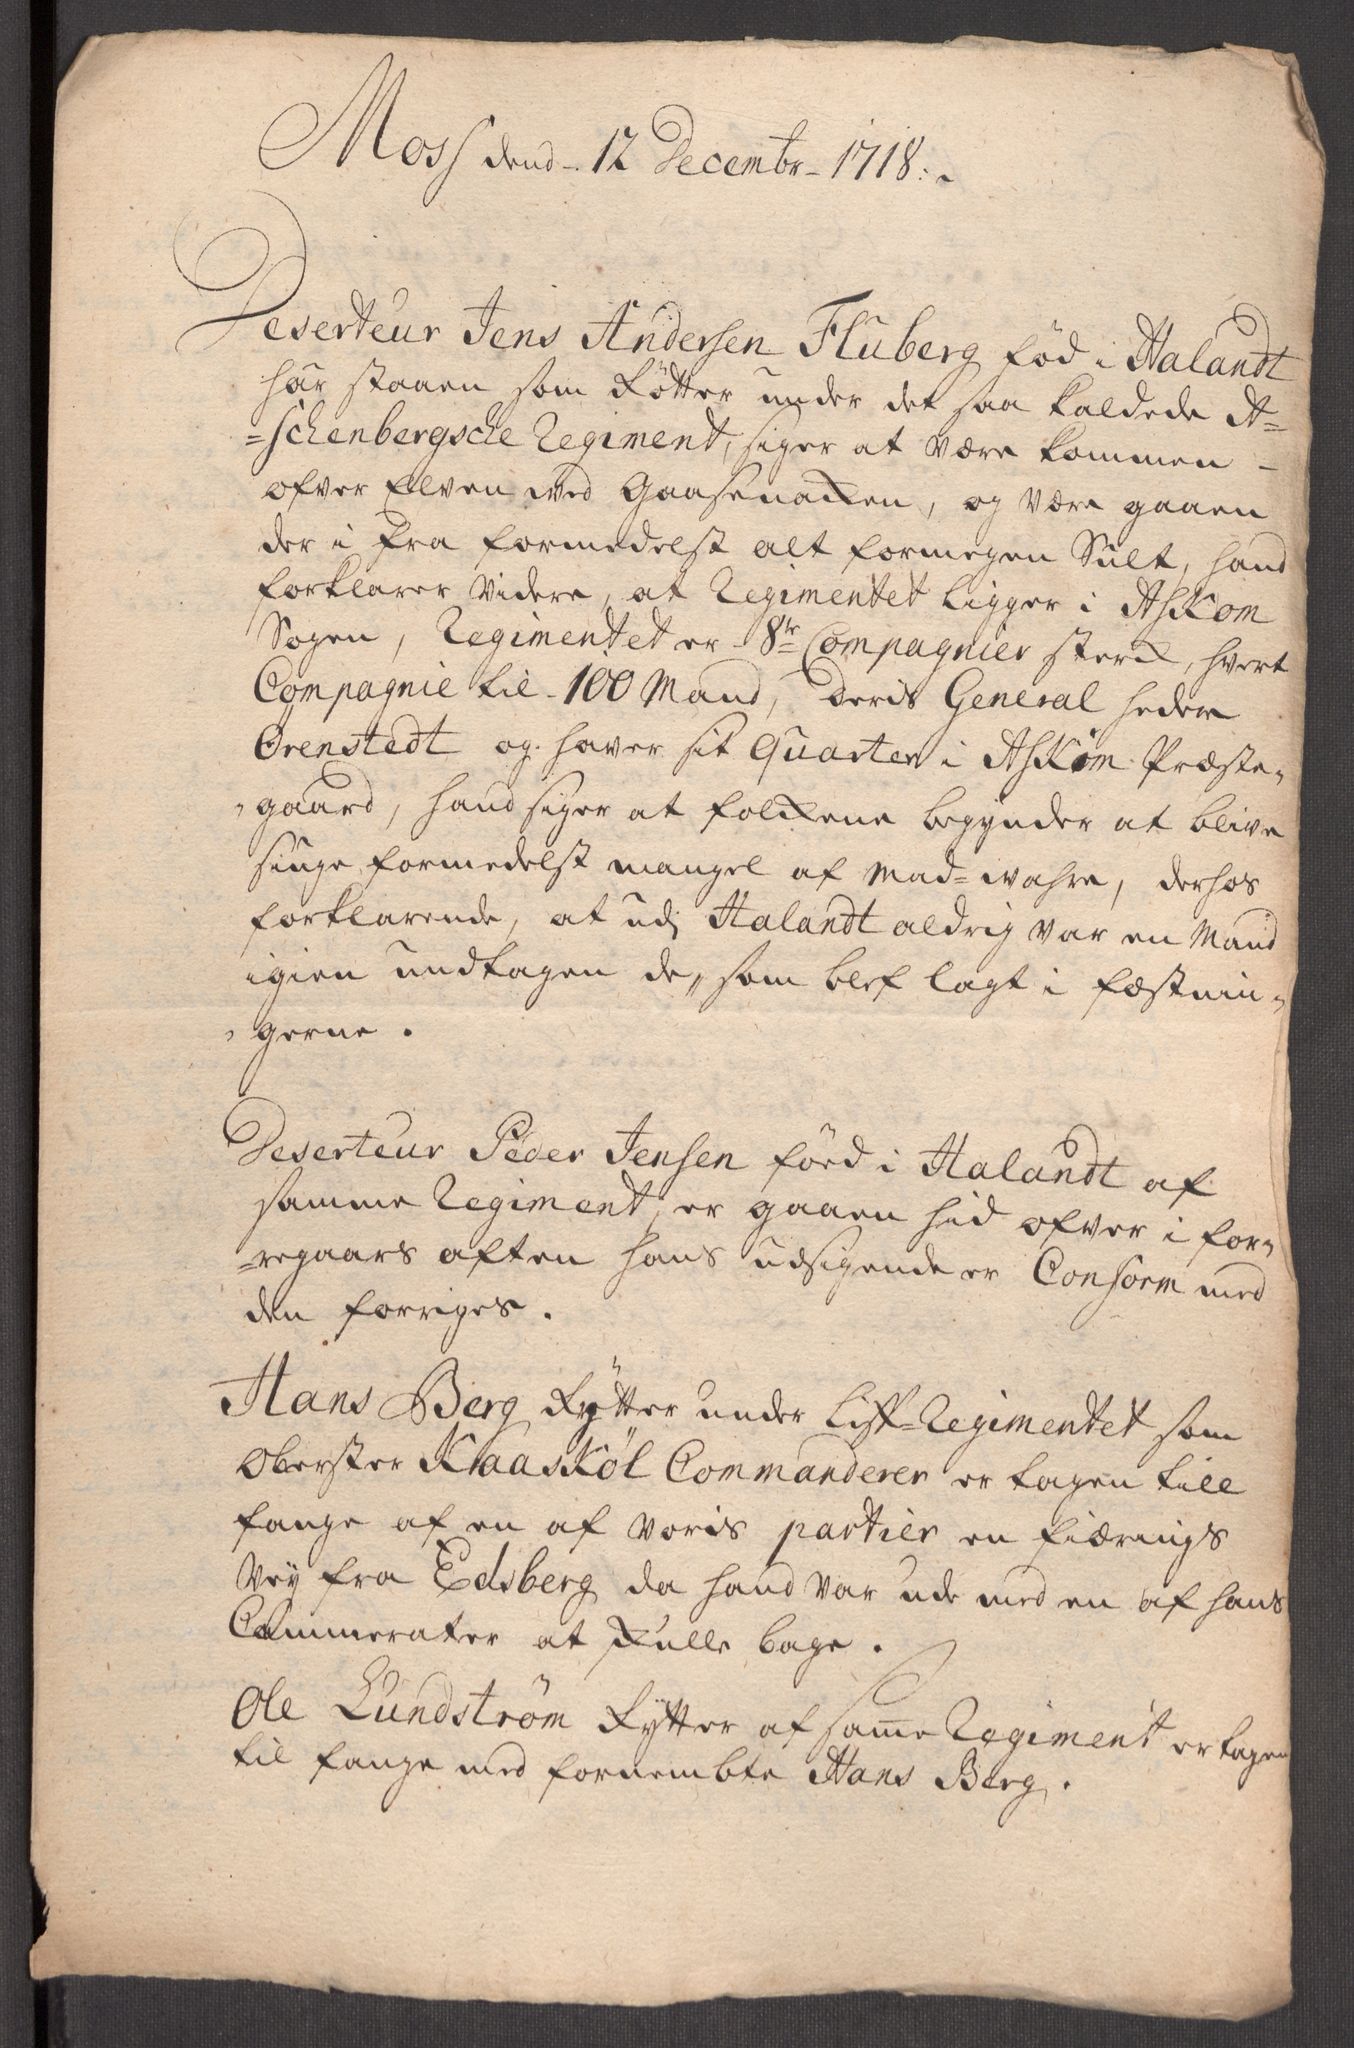 Moss dend 12 Decembr. 1718.
Deserteur Jens Andersen Fluberg föd i Halandt
har staaen som Rötter under det saa kaldede A-
=schenbergsche Regiment, siger at være kommen -
ofver Elven ved Gaasenacken, og være gaaen
der i fra formedelst alt formegen Sult, hand
forklarer videre, at Regimentet ligger i Askom
Sogen, Regimentet er 8te Compagnier sterck, hvert
Compagnie til 100 Mand, Deris General heder
Örenstedt og haver sit Quarter i Askom Præste-
gaard, hand siger at folckene begynder at blive
siuge formedelst mangel af Mad=wahre, derhos
forklarende, at udj Halandt aldrig var en Mand
igien undtagen de, som blef lagt i fæstnin-
gerne.
Deserteur Peder Jensen föed i Halandt af
samme Regiment, er gaaen hid ofver i for-
=regaars aften hans udsigende er Conform med
den forriges.
Hans Berg Rÿtter under Liff=Regimentet som
Oberster Klaasköl Commanderer er tagen till
fange af en af voris partier en fierings
vej fra Edsberg da hand var ude med en af hans
Cammerater at skulle bage.
Ole Lundström Rytter af samme Regiment er tagen
til fange med fornembte Hans Berg.